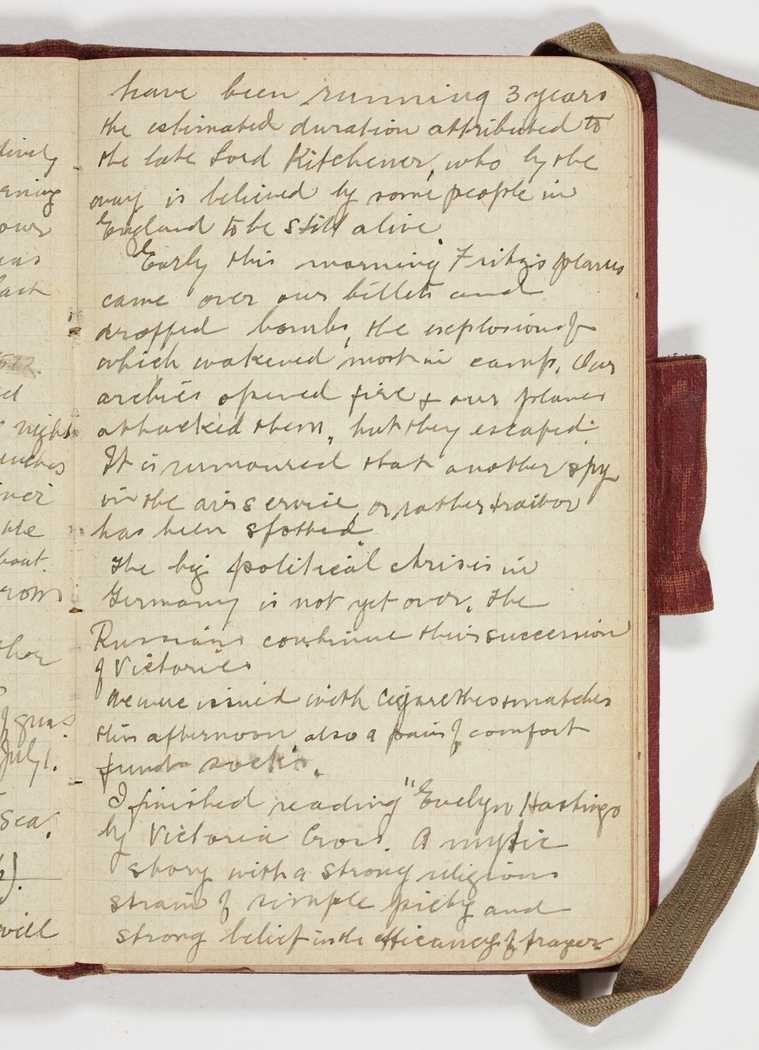 tively
ening
our
was
last
night
will
July 1.
Sea.
have been running 3 years
the estimated duration attributed to
the late Lord Kitchener, who by the
way is believed by some people in
England to be still alive
Early this morning Fritz's planes
came over our billets and
dropped bombs, the explosion of
which wakened most in camp. Our
archies opened fire & our planes
attacked them, but they escaped.
It is rumoured that another spy
in the air service, or rather traitor
has been spotted.
The big political chrisis in
Germany is not yet over. The
Russians continue their succession
of Victories
We were issued with cigarettes & matches
this afternoon also a pair of comfort
fund socks.
I finished reading "Evelyn Hastings
by Victoria Cross. A mystic
story with a strong religious
strain of simple piety and
strong belief in the efficancy of prayer